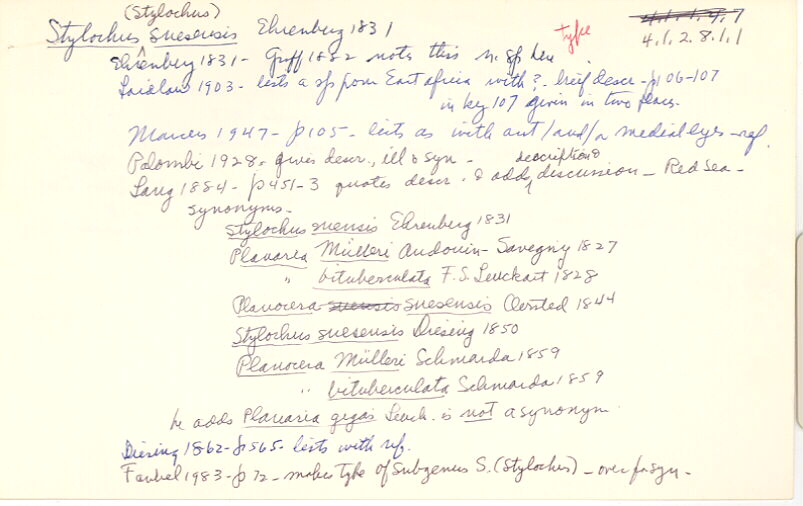 (Stylochus)
Stylochus suesensis Ehrenberg 1831
type
4.1.1.4.7
4.1.2.8.1.1
Ehrenberg 1831 - Graff 1882 notes this n. sp here.
Laidlaw 1903 - lists a sp from East africa with ? - breif descr - p106-107
in key 107 given in two places.
Marcus 1947 - p105 - lists as with ant/and/or medial eyes - ref.
Palombi 1928 - gives descr., ill & syn -
Lang 1884 - p451-3 quotes descr. & adds description & discussion - Red Sea -
synonyms -
Stylochus suensis Ehrenberg 1831
Planaria Mülleri Audouin - Savegny 1827
" bituberculata F.S. Leuckart 1828
Planocera suensis suesensis Oersted 1844
Stylochus suesensis Diesing 1850
Planocera Mülleri Schmarda 1859
" bituberculata Schmarda 1859
he adds Planaria gigas Leuck. is not a synonym.
Diesing 1862 - p565 - lists with ref.
Faubel 1983 - p72 - makes type of Subgenus S. (Stylochus) - over for syn -